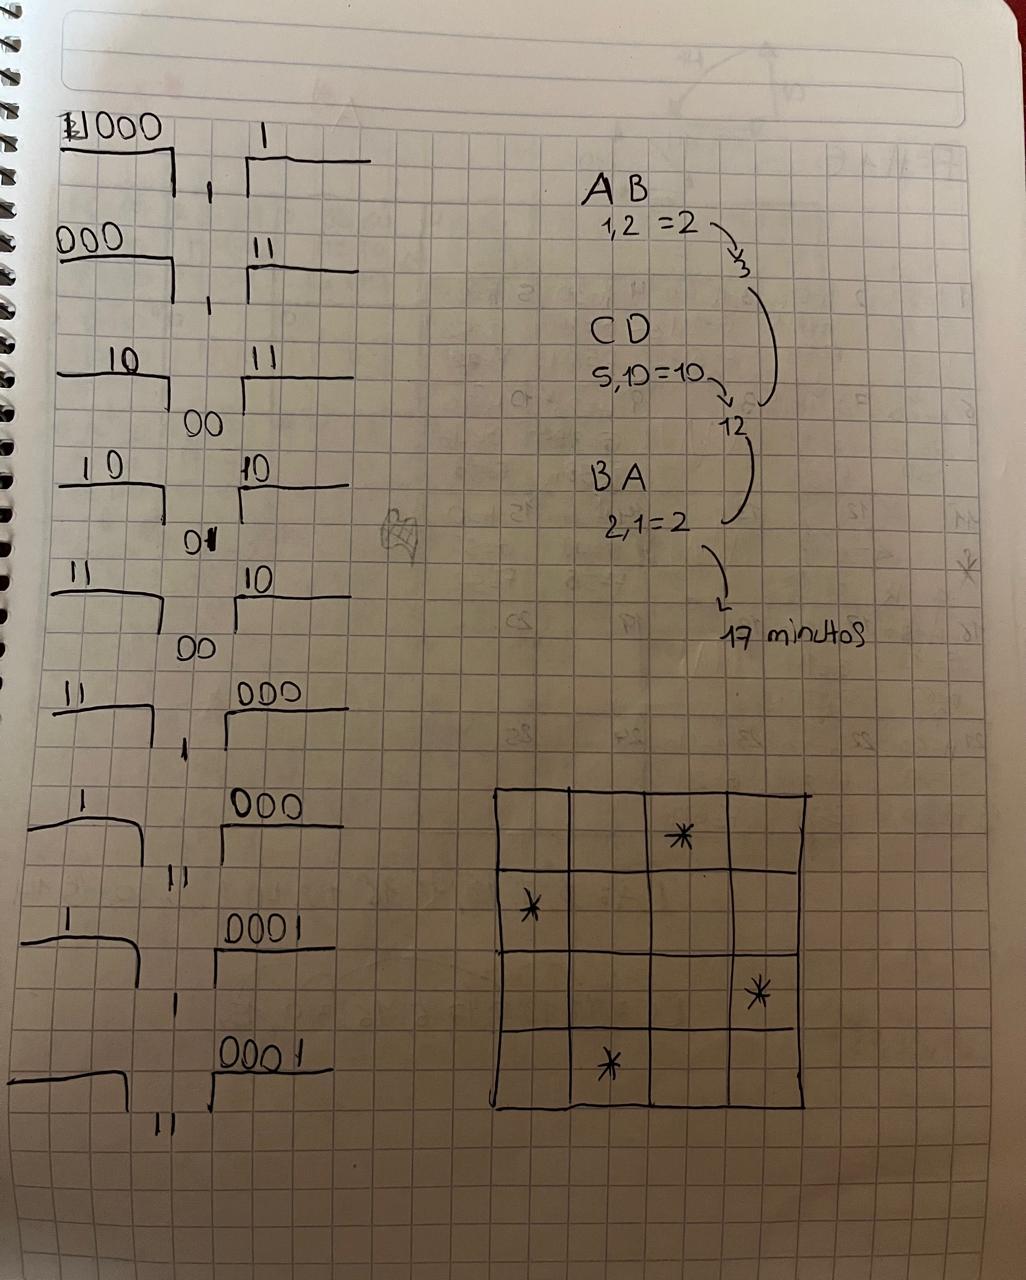 11000 1
1
000 11
1
10 11
00
10 10
01
11 10
00
11 000
1
1 000
11
1 0001
1
0001
11
A B
1,2 = 2
3
C D
5,10 = 10
12
B A
2,1 = 2
17 minutos
*
*
*
*